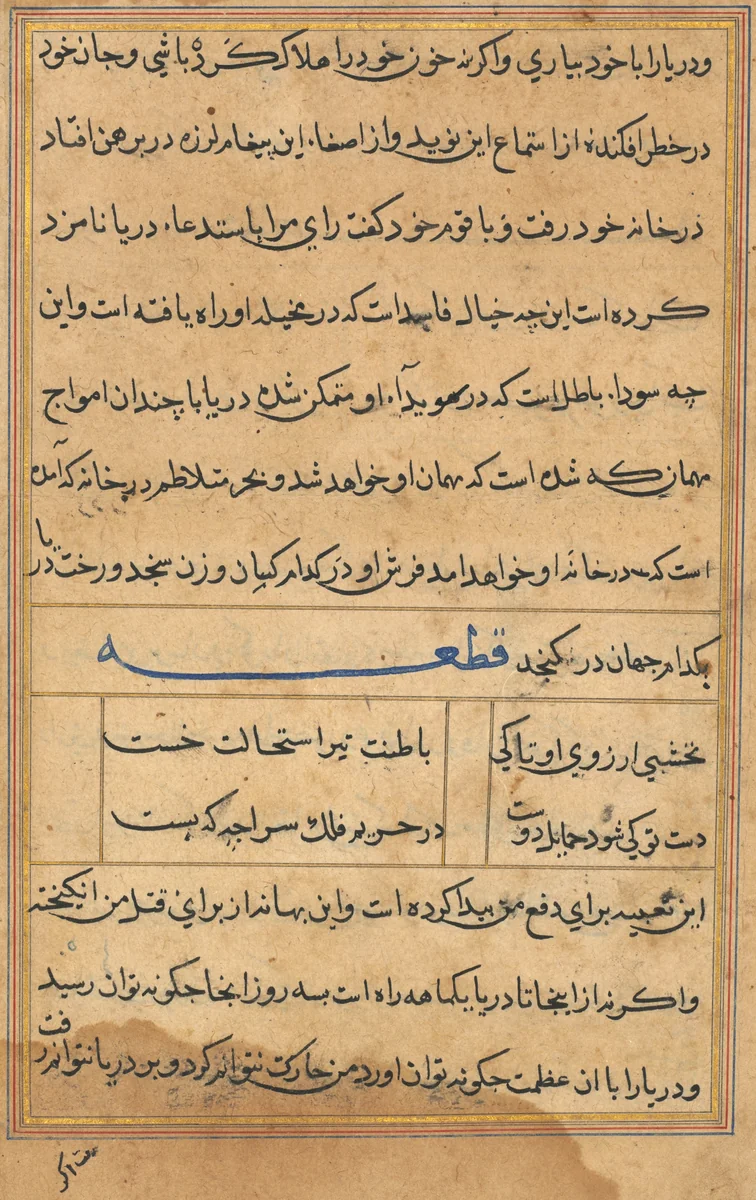 ودریا را با خود بیاري واکر نه خون خود را هلاک کرده باشي وجان خود
در خطر افکنده از استماع این نوید واز اصغاء این پیغام لرزه در برهمن افتاد
در خانه خود رفت و با قوم خود کفت راي مرا باستدعاء دریا نامزد
کرده است این چه خیال فاسد است که در مخیله او راه یافته است واین
چه سوداء باطل است که در سویداء او متمکن شده دریا با چندان امواج
مهمان که شده است که مهمان او خواهد شد و بحر متلاطم در خانه که آمده
است که در خانه او خواهد امد فرش او در کدام کپان وزن سنجد ورخت دریا
بکدام جهان در کنجد قطعه
نخشبي ارزوي او تا کي
باطنت تیر استحالت خست
دست تو کي شود حمایل دوست
در حریم فلک سراچه که بست
این تعبیه براي دفع من پیدا کرده است واین بهانه از براي قتل من انکیخته
واکر نه از اینجا تا دریا یکماهه راه است بسه روز انجا چکونه توان رسید
ودریا را با ان عظمت چکونه توان اورد من حارکت نتوانم کرد و بر دریا نتوانم رفت